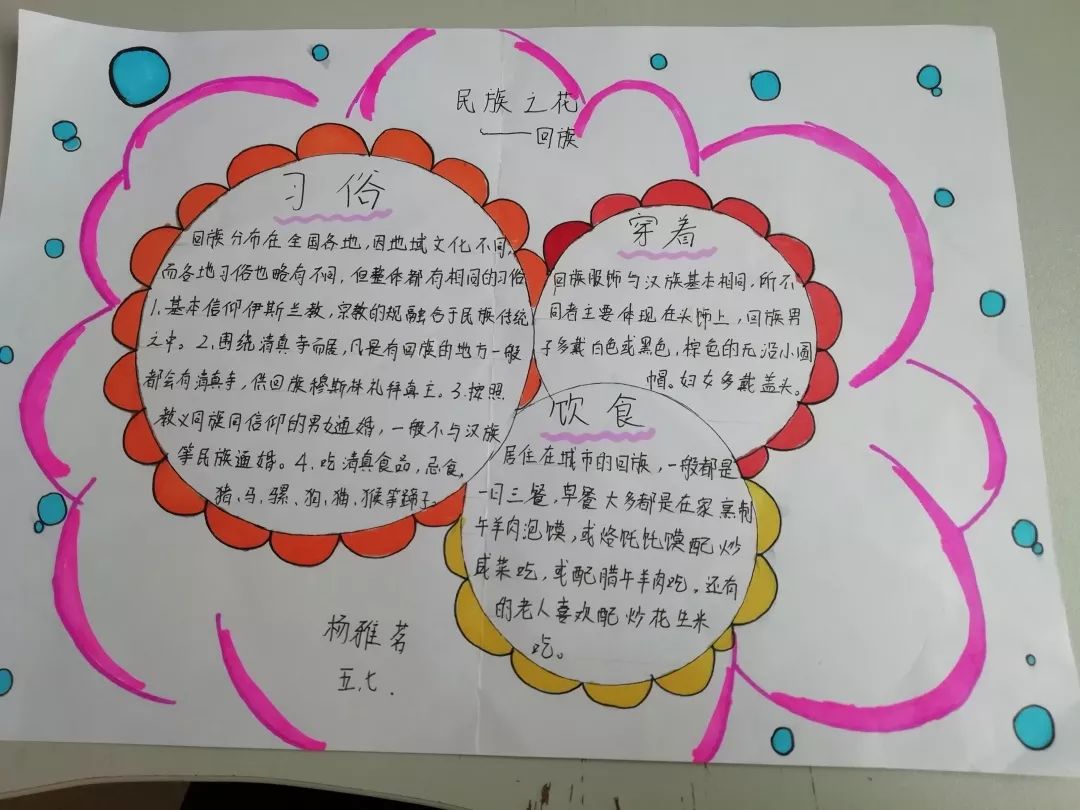 民族之花
——回族
习俗
回族分布在全国各地,因地域文化不同,
而各地习俗也略有不同,但整体都有相同的习俗
1.基本信仰伊斯兰教,宗教的规融合于民族传统
之中。2.围绕清真寺而居,凡是有回族的地方一般
都会有清真寺,供回族穆斯林礼拜真主。3.按照
教义同族同信仰的男女通婚,一般不与汉族
等民族通婚。4.吃清真食品,忌食
猪、马、骡、狗、猫、猴等蹄子。
穿着
回族服饰与汉族基本相同,所不
同者主要体现在头饰上,回族男
子多戴白色或黑色,棕色的无沿小圆
帽。妇女多戴盖头。
饮食
居住在城市的回族,一般都是
一日三餐,早餐大多都是在家烹制
牛羊肉泡馍,或烙饦饦馍配炒
咸菜吃,或配腊牛羊肉吃。还有
的老人喜欢配炒花生米
吃。
杨雅茗
五.七.